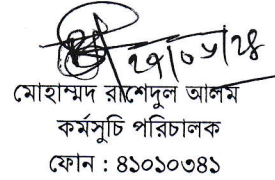 ২৭/০৬/২৪
মোহাম্মদ রাশেদুল আলম
কর্মসুচি পরিচালক
ফোন : ৪১০১০৩৪১